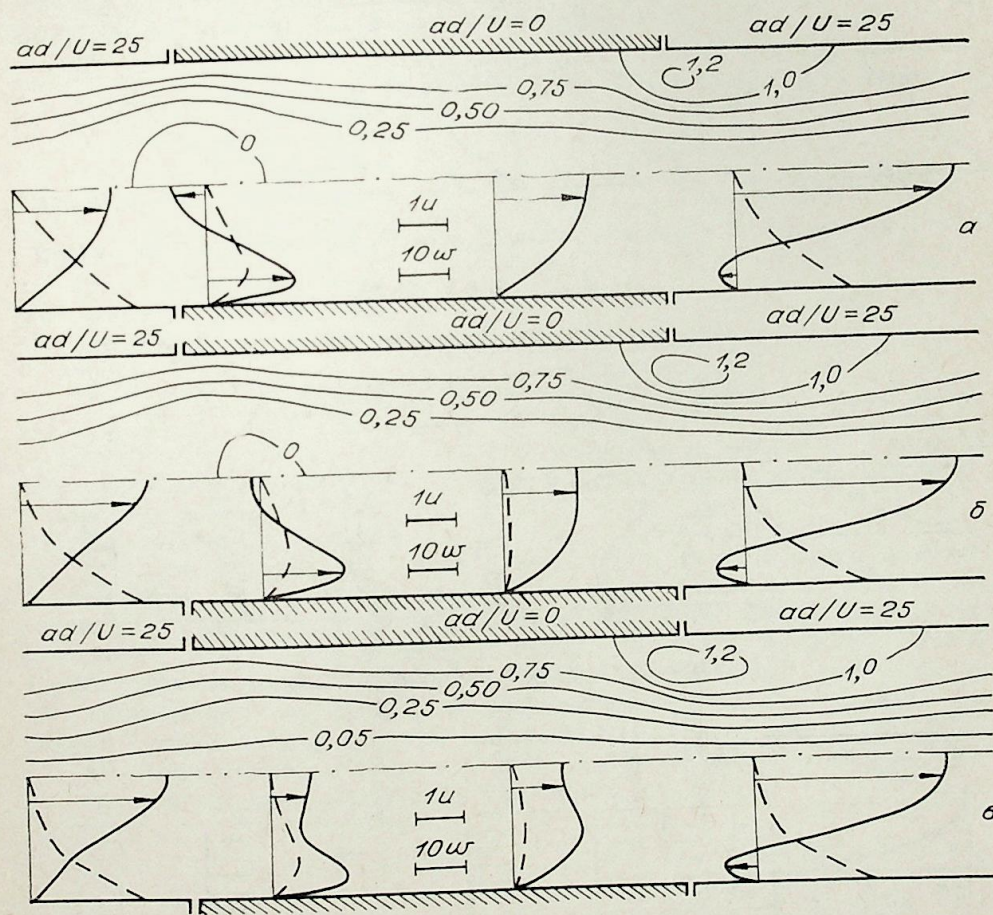 ad/U=25 ad/U=0 ad/U=25
1,2
0,75 1,0
0,50
0,25
0
1u
а
10w
ad/U=25 ad/U=0 ad/U=25
1,2
0,75 1,0
0,50
0,25
0
1u
б
10w
ad/U=25 ad/U=0 ad/U=25
1,2
0,75 1,0
0,50
0,25
0,05
1u
в
10w